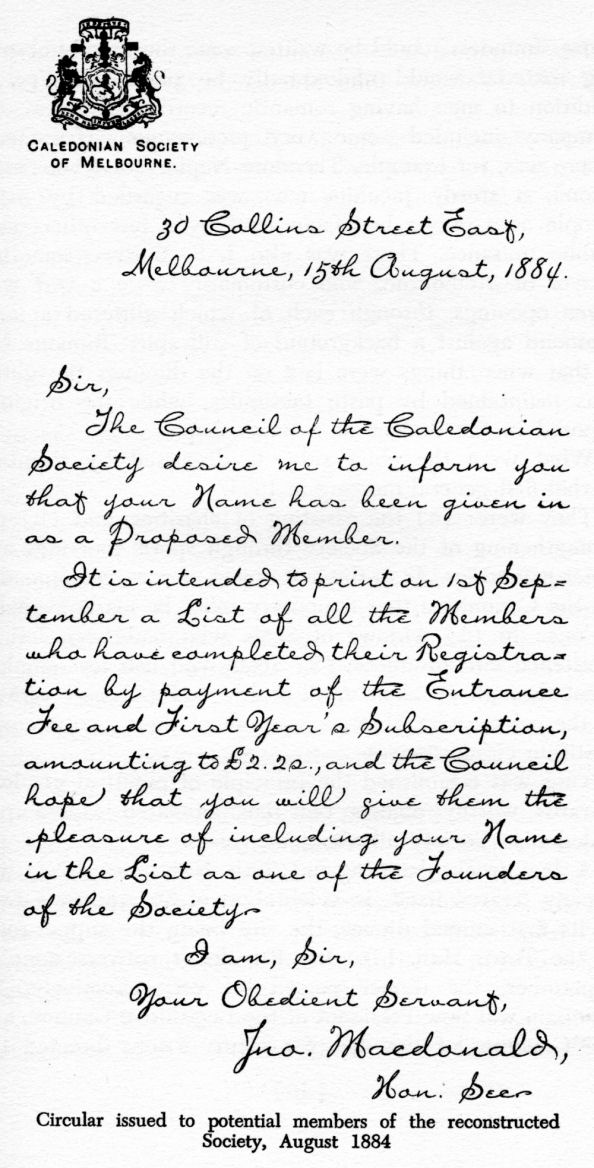 CALEDONIAN SOCIETY
OF MELBOURNE.
30 Collins Street East,
Melbourne, 15th August, 1884.
Sir,
The Council of the Caledonian
Society desire me to inform you
that your Name has been given in
as a Proposed Member.
It is intended to print on 1st Sep=
tember a List of all the Members
who have completed their Registra=
tion by payment of the Entrance
Fee and First Year's Subscription,
amounting to £2.2s., and the Council
hope that you will give them the
pleasure of including your Name
in the List as one of the Founders
of the Society.
I am, Sir,
Your Obedient Servant,
Jno. Macdonald,
Hon. Sec.
Circular issued to potential members of the reconstructed
Society, August 1884